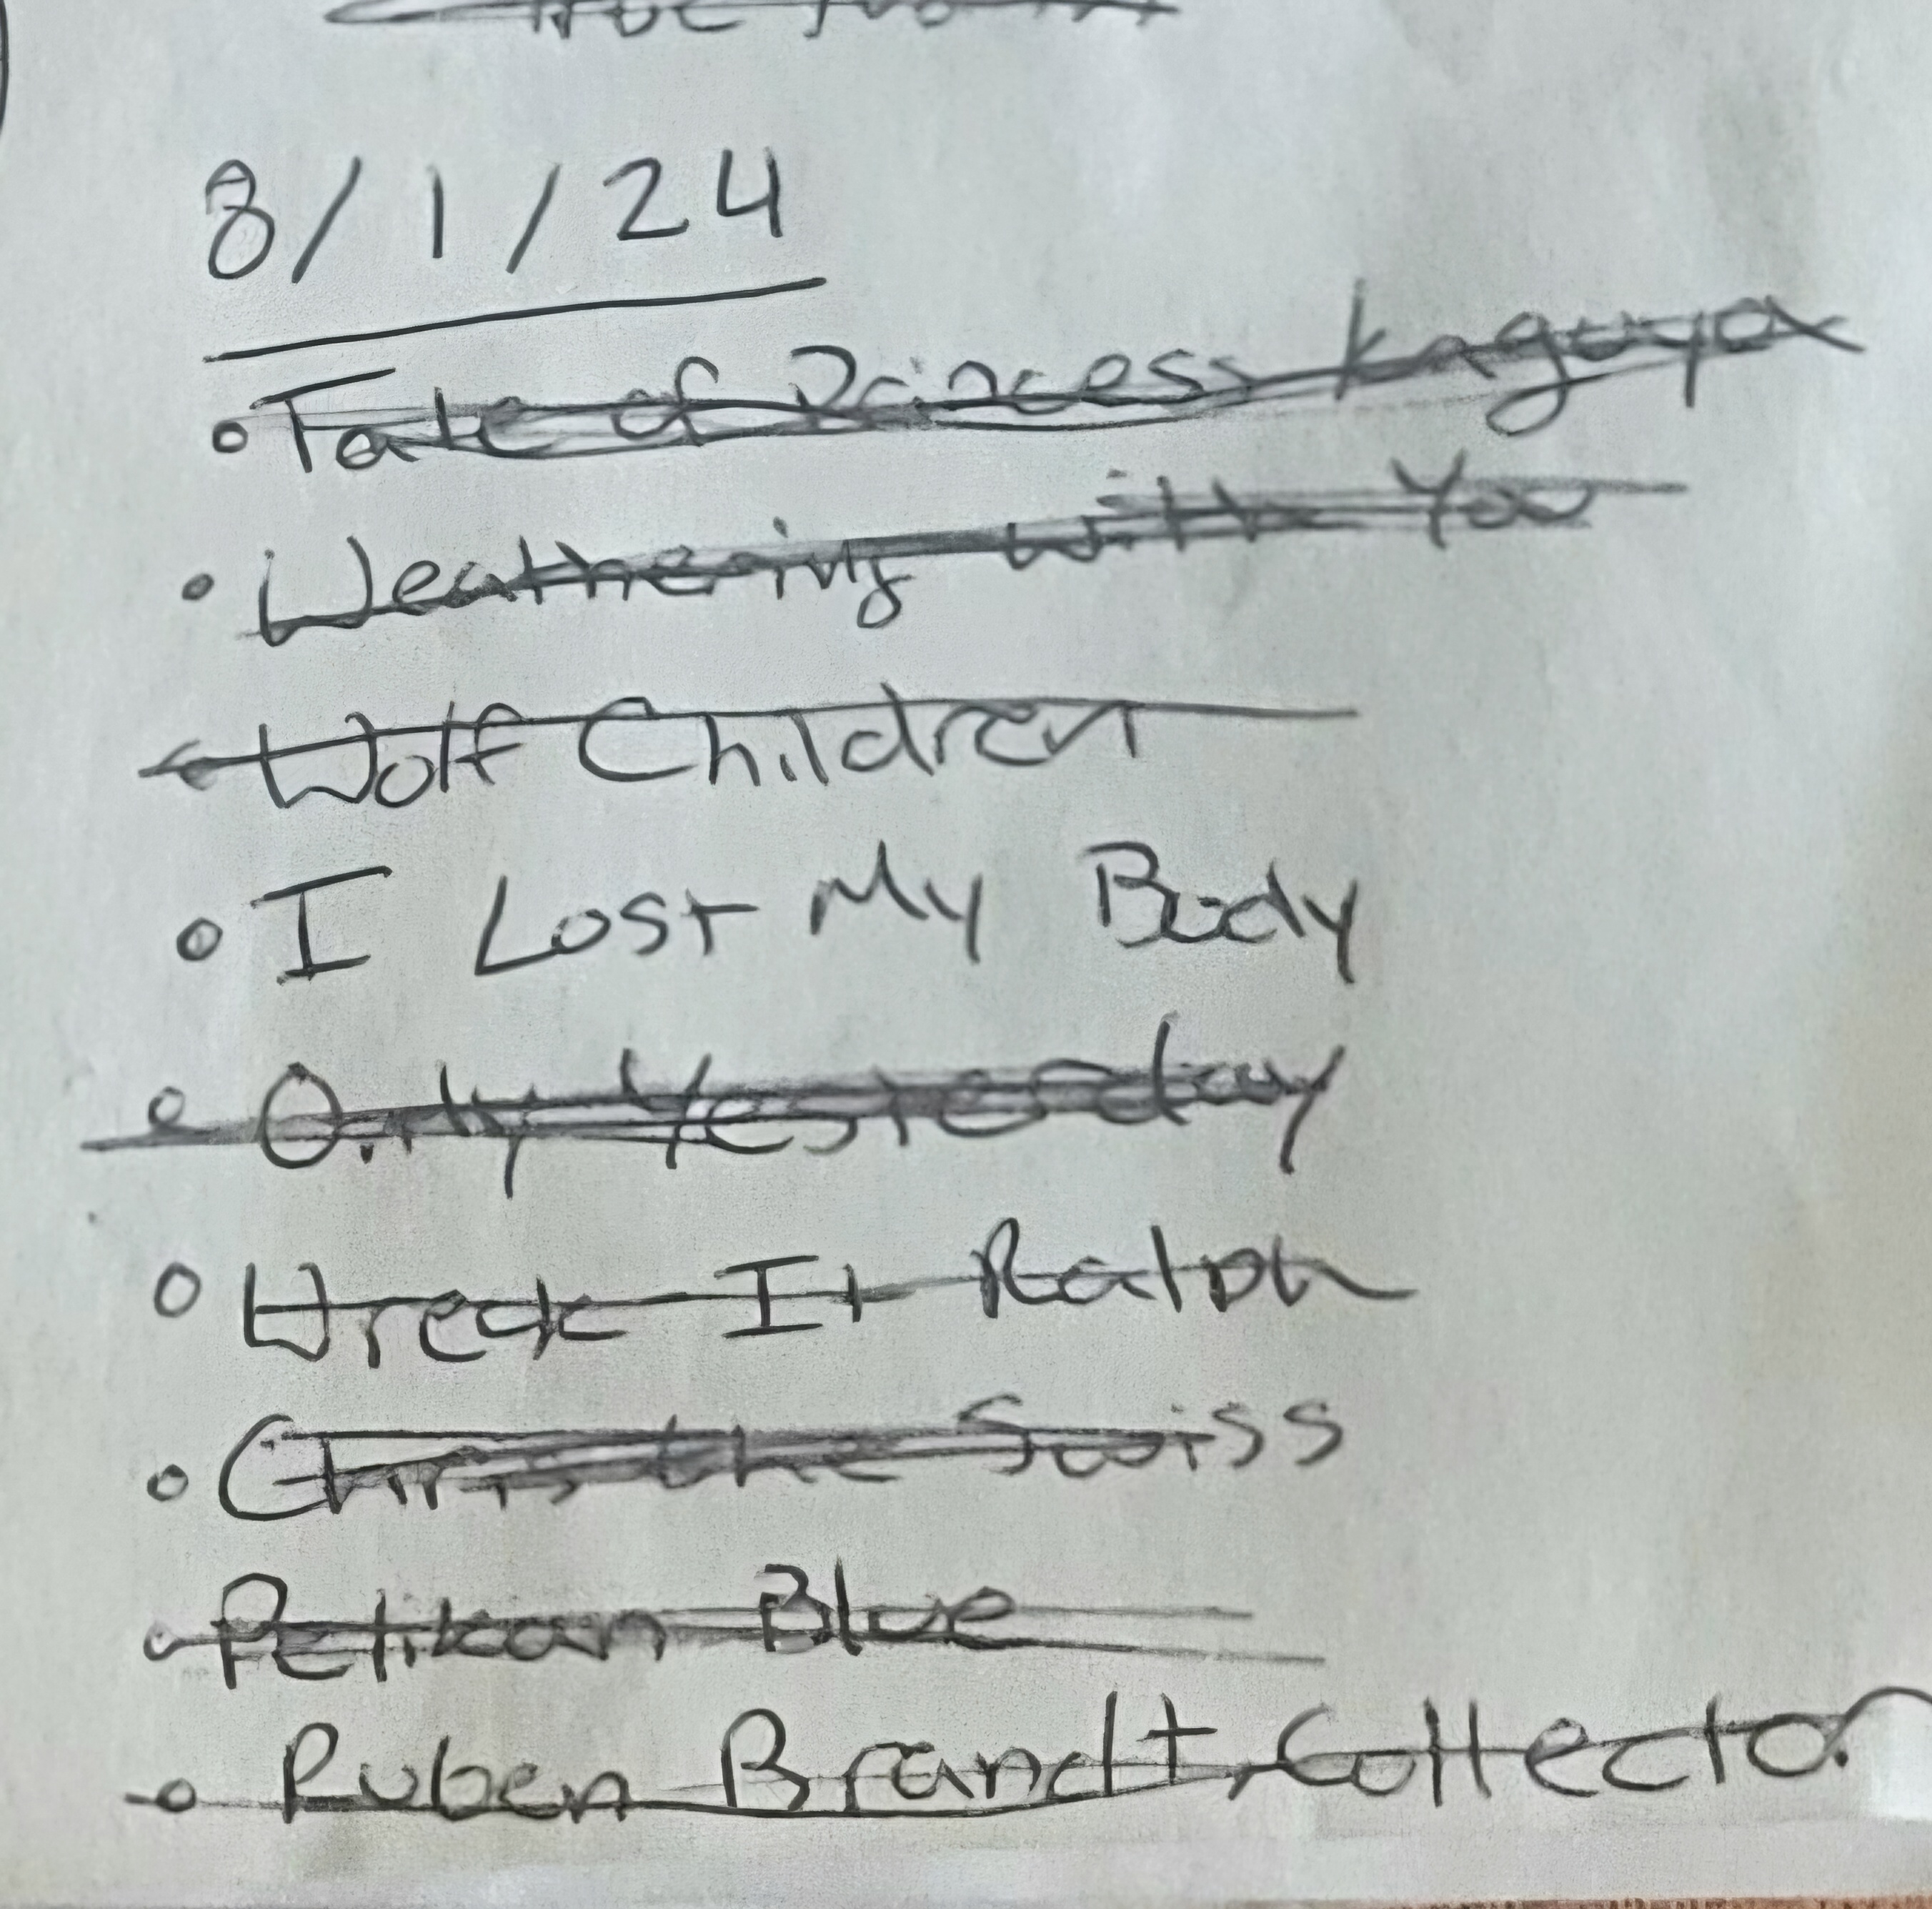 8/1/24
Tale of Princess Kaguya
Weathering with You
Wolf Children
I Lost My Body
Only Yesterday
Wreck It Ralph
Chris the Swiss
Pelikan Blue
Ruben Brandt, Collector